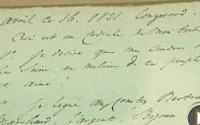 avril ce 16. 1821. Longwood.
Ceci est un codicile de mon test
1° Je désire que mes cendres
la Seine au milieu de ce peuple
aimé!
Je lègue au comte Bertrand
Marchand l'argent, bijoux